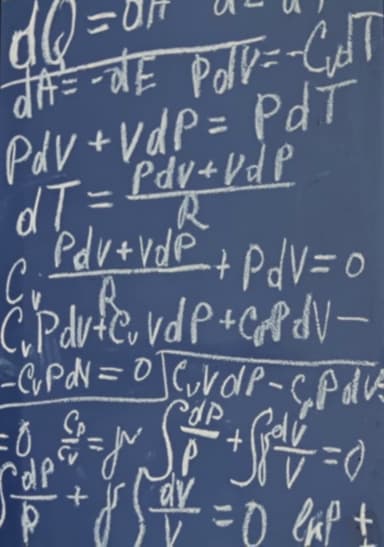 dQ = 
dA = -dE PdV = -CvdT
Pdv + VdP = PdT
dT = Pdv + VdP / R
Cv · Pdv + VdP / R + PdV = 0
CvPdv + CvVdP + CpPdV -
-CvPdV = 0 CvVdP - CpPdV
= 0 Cp/Cv = γ ∫ dP/P + ∫γ dV/V = 0
∫ dP/P + γ ∫ dV/V = 0 lnP +